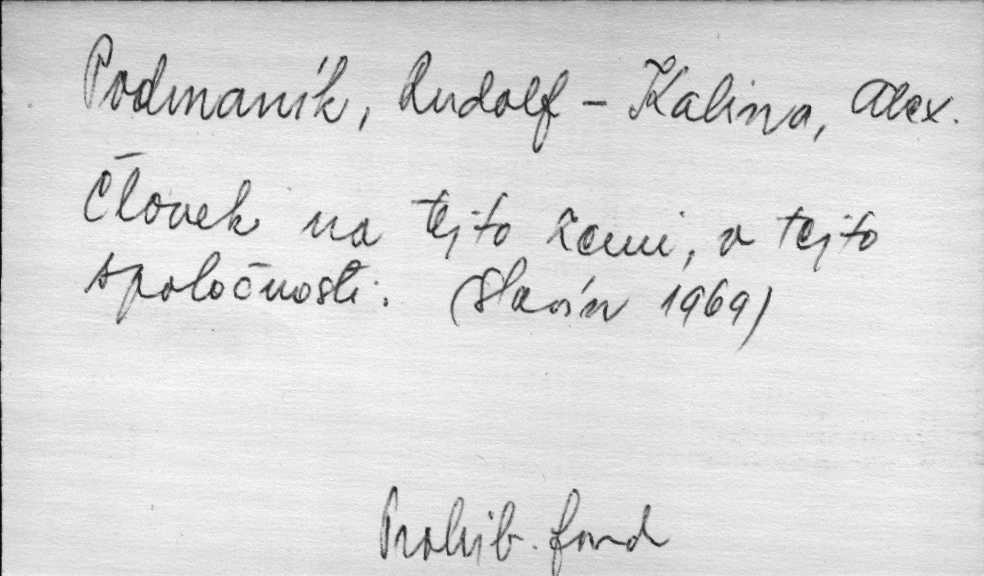 Podmaník, Rudolf – Kalina, Alex.
Človek na tejto zemi, v tejto
spoločnosti. (Slavín 1969)
Prohib. fond